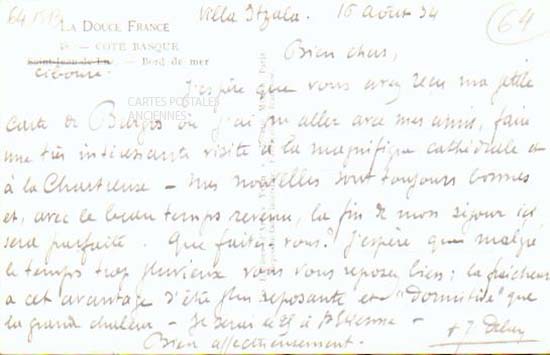 Villa Itzala. 16 Août 34
64
LA DOUCE FRANCE
CÔTE BASQUE
Saint-Jean-de-Luz — Bord de mer
Ciboure
CARTES POSTALES
ANCIENNES
Bien chers,
J'espère que vous avez reçu ma petite
carte de Burgos où j'ai pu aller avec mes amis, faire
une très intéressante visite à la magnifique cathédrale et
à la Chartreuse — Mes nouvelles sont toujours bonnes
et, avec le beau temps revenu, la fin de mon séjour ici
sera parfaite. Que faites-vous? J'espère que malgré
le temps trop pluvieux vous vous reposez bien; la fraîcheur
a cet avantage d'être plus reposante et "dormitive" que
la grande chaleur — Je serai le à St Etienne —
Bien affectueusement.